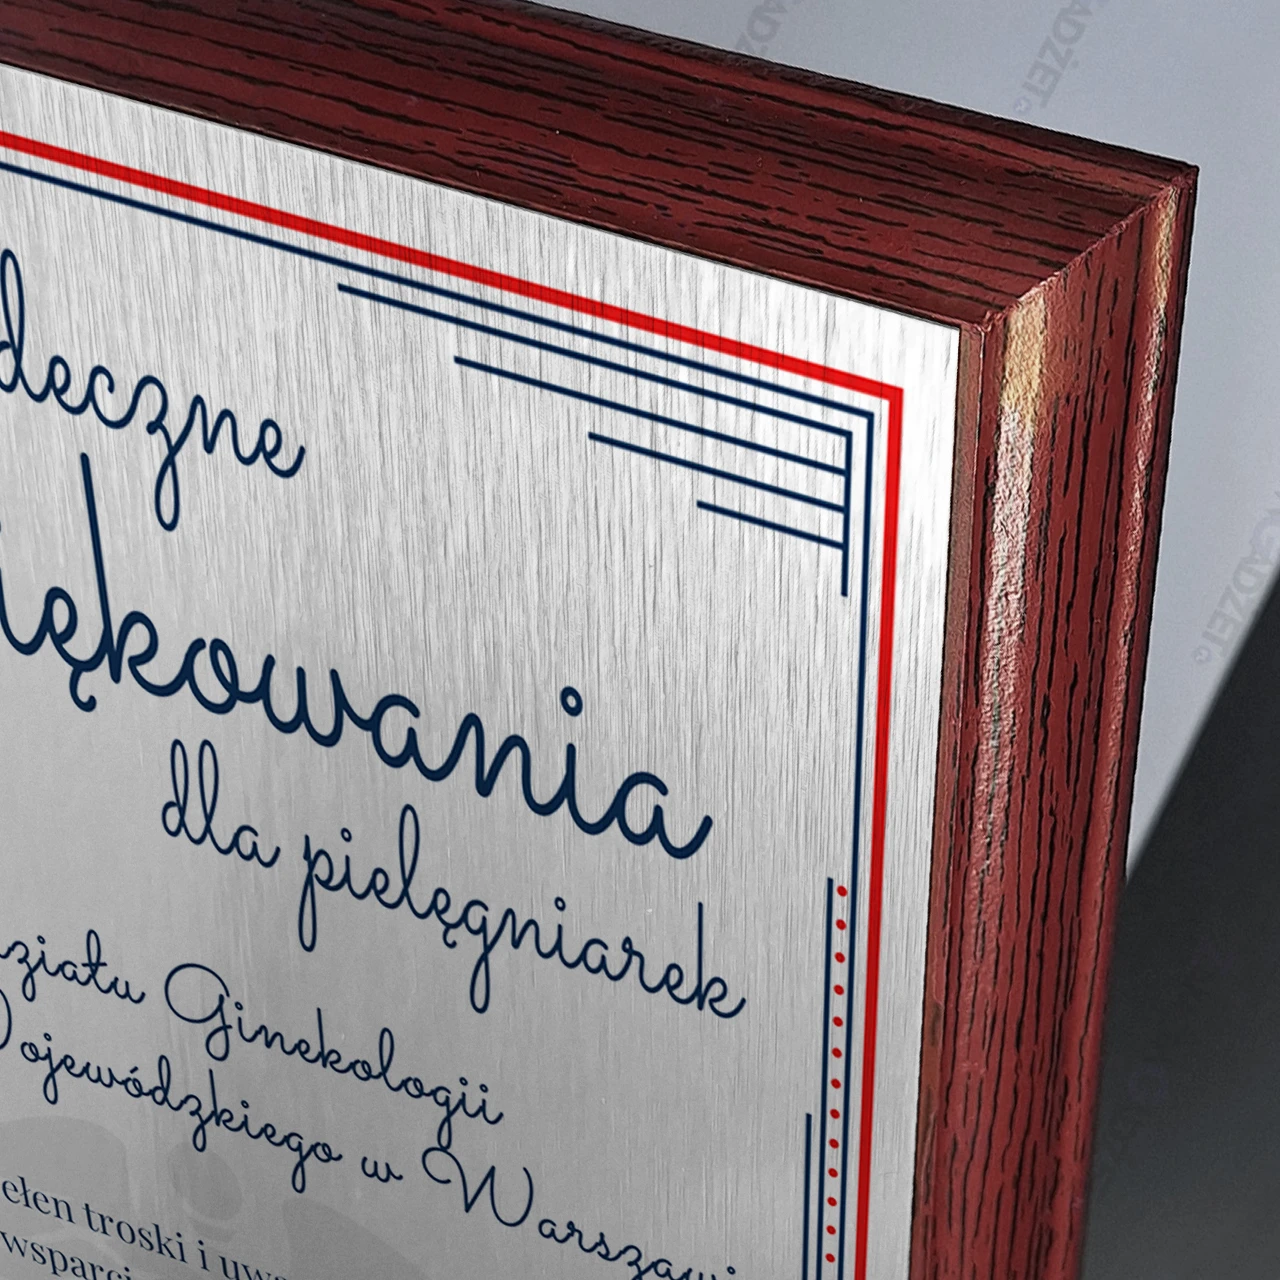 deczne
iękowania
dla pielęgniarek
ziału Ginekologii
Wojewódzkiego w Warszawi
ełen troski i uwa
wsparci
GADŻET
GADŻET
GADŻET